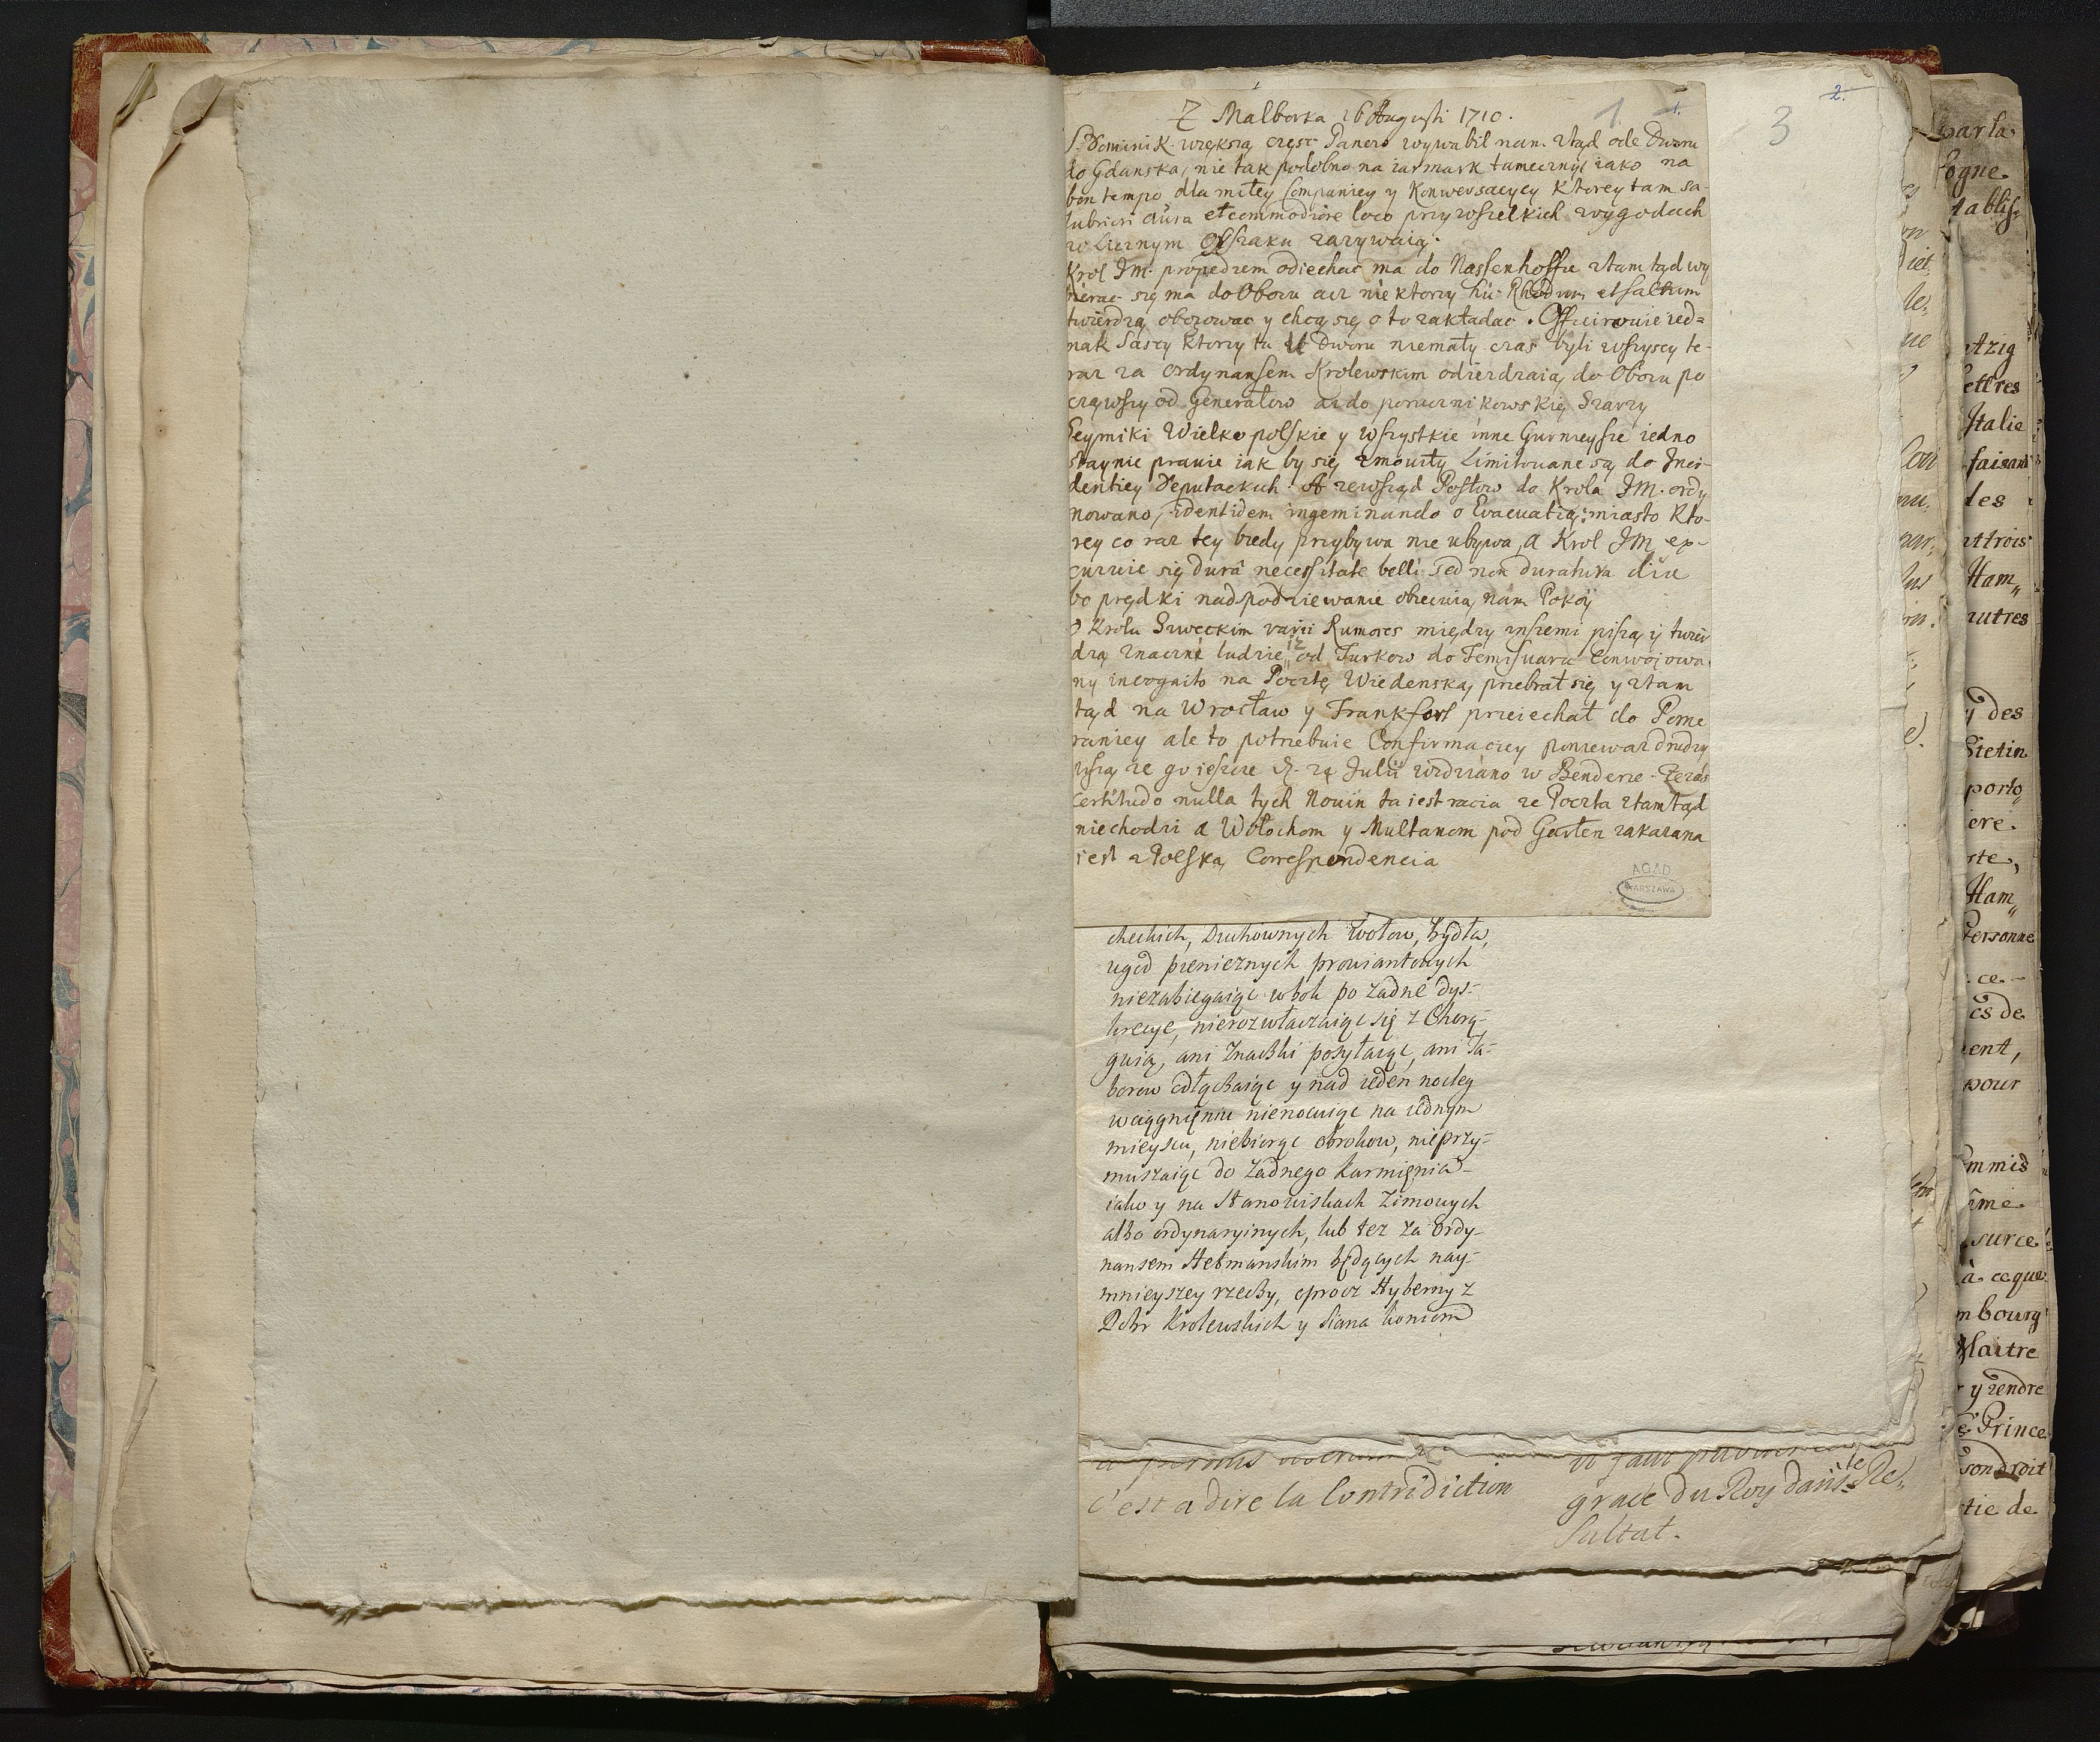 Z Malborka 16 Augusti 1710.
1.
1.
2.
3
S. Dominik większą częsc Panow wywabił nam ztąd ode Dworu
do Gdanska, nie tak podobno na iarmark tameczny iako na
bon tempo dla miłey Companiey y Konwersacyey ktorey tam sa-
lubriori aura et commodiore loco przy wszelkich wygodach
w Licznym Orszaku zazywaią.
Krol JM. propediem odiechac ma do Nassenhoffu ztamtąd wy
bierac się ma do Obozu acz niektorzy hic Rhodum et saltum
twierdzą obozowac y chcą się o to zakładac. Officirowie ied=
nak Sascy ktorzy tu u Dworu niemały czas byli wszyscy te-
raz za ordynansem Krolewskim odiezdzaią do Obozu po
cząwszy od Generałow az do porucznikowskiey Szarzy
Seymiki Wielkopolskie y wszystkie inne Gurnieysze iedno
staynie prawie iak by się zmowiły Limitowane są do Inci-
dentiey Deputackich. A zewsząd Posłow do Krola JM. ordy
nowano, identidem ingeminando o Evacuatią: miasto kto-
rey co raz tey biedy przybywa nie ubywa, a Krol JM ex-
cuzuie się dura necessitate belli sed non duratura diu
bo prędki nadspodziewanie obiecuią nam Pokoy
O Krolu Szweckim varii Rumores między inszemi piszą y twier
dzą znaczne ludzie, iz od Turkow do Temisuaru Conwojowa
ny incognito na Pocztę Wiedenską przebrał się y ztam
tąd na Wrocław y Frankfort przeiechał do Pome
raniey ale to potrzebuie Confirmaciey poniewaz drudzy
piszą ze go ieszcze d. 24 Julii widziano w Benderze. Ze zas
certitudo nulla tych Nowin ta iest racia ze Poczta ztamtąd
niechodzi a Wołochom y Multanom pod Gardłen zakazana
iest z Polską Correspondencia
AGAD
WARSZAWA
checkich, Duchownych Wołow, bydła,
ugod pienieznych prowiantowych
niezabiegaiąc w bok po zadne dys-
krecye, nierozwłacaiąc się z Chorą-
gwią, ani Znaczki posyłaiąc, ani Ta-
borow odłączaiąc y nad ieden nocleg
w ciągnieniu nienocuiąc na iednym
mieyscu, niebiorąc obrokow, nieprzy-
muszaiąc do zadnego karmienia
iako y na Stanowiskach Zimowych
albo ordynaryinych, lub tez za Ordy-
nansem Hetmanskim będących nay-
mnieyszey rzeczy, oprocz Hyberny z
Dobr Krolewskich y Siana koniom
c'est a dire la Contradiction
grace du Roy dans le Re,,
sultat.
parla
fogne
tablis,
ntzig
ettres
Italie
faisant
des
et trois
Ham,,
autres
y des
Stetin
porto,
iere.
Ham,,
Personne
ce
cs de
ent,
pour
mmis
ime
surce
à ce que
mbourg
Maitre
y rendre
Prince
son droit
tie de